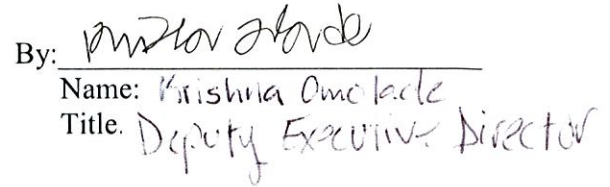 By:
Name: Krishna Omolade
Title. Deputy Executive Director